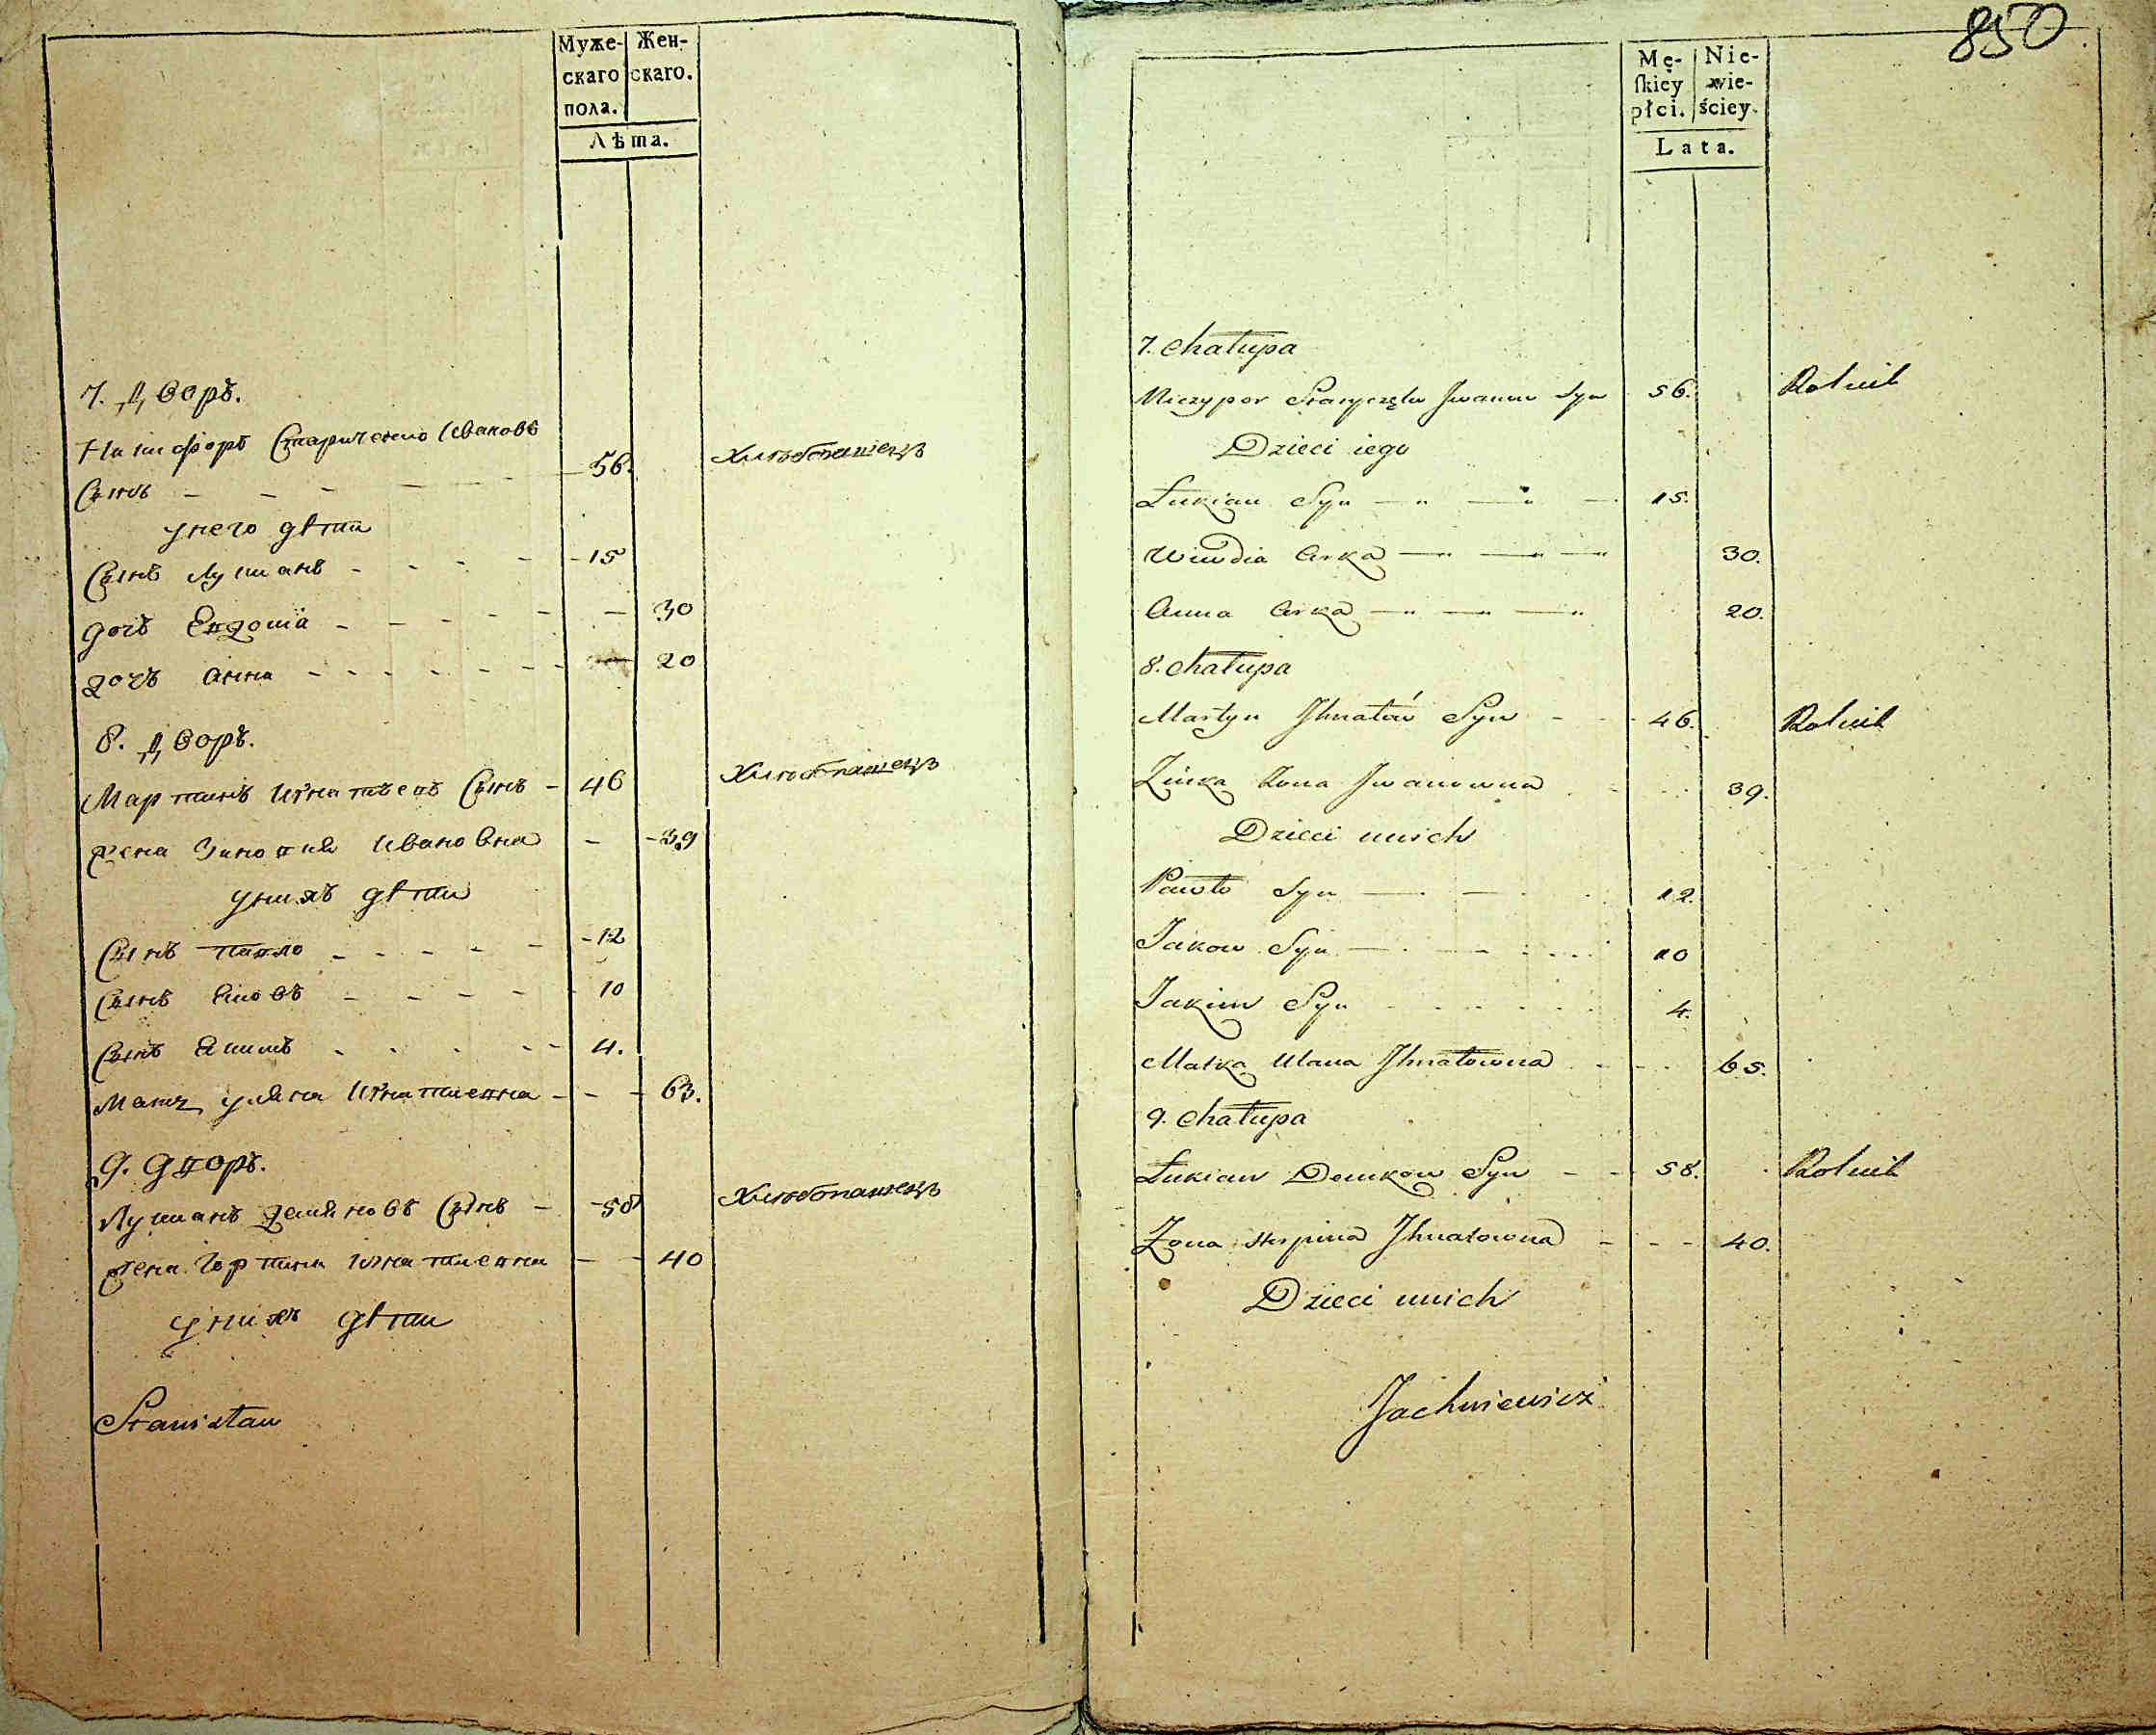 Муже-
скаго
пола.
Жен-
скаго.
Лѣта.
7. Дворъ.
Никифоръ Стариченко Ивановъ
Сынъ - - - - - - 56.
Хлѣбопашецъ
унего дѣти
Сынъ Лукианъ - - - - 15
дочъ Евдокія - - - - - 30
дочъ Анна - - - - - - 20
8. Дворъ.
Мартинъ Игнатьевъ Сынъ - 46
Хлѣбопашецъ
жена Зиновия Ивановна - - 39
унихъ дѣти
Сынъ Павло - - - - - 12
Сынъ Яковъ - - - - 10
Сынъ Якимъ - - - - - 4.
Мать уляна Игнатиевна - - - 63.
9. Дворъ.
Лукианъ Демяновъ Сынъ - - 58
Хлѣбопашецъ
жена Горпина Игнатиевна - - 40
унихъ дѣти
Stanisław
850
Mę-
ſkiey
płci.
Nie-
wie-
ściey.
Lata.
7. Chałupa
Niczypor Staryczęko Jwanow Syn 56. Rolnik
Dzieci iego
Łukian Syn 15.
Wiwdia Corka 30.
Anna Corka 20.
8. Chałupa
Martyn Jhnatów Syn - - - 46. Rolnik
Zinka Żona Jwanowna 39.
Dzieci unich
Pawło Syn 12.
Jakow Syn 10
Jakim Syn 4.
Matka Ulana Jhnatowna 65.
9. Chałupa
Łukian Demkow Syn - - - 58. Rolnik
Żona Horpina Jhnatowna - - - 40.
Dzieci unich
Jachniewicz